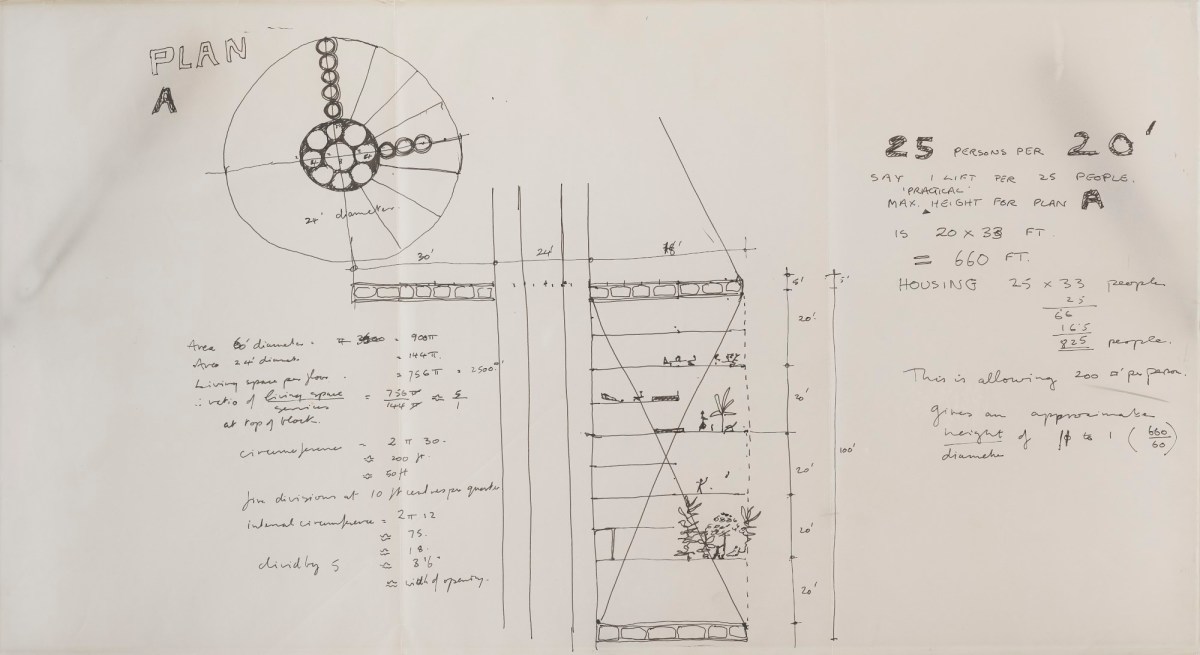 PLAN
A
24' diameter.
30'
24'
18'
5'
5'
20'
20'
20'
20'
20'
100'
Area 60' diameter = 900π
Area 24' diameter = 144π.
Living space per floor. = 756π = 2500
∴ ratio of living space / services = 756π / 144π ≈ 5/1
at top of block.
circumference = 2 π 30.
≈ 200 ft.
≈ 50 ft
five divisions at 10 ft centres per quarter
internal circumference = 2π 12
≈ 75.
≈ 18.
divid by 5 ≈ 3'6"
≈ width of opening.
25 PERSONS PER 20'
SAY 1 LIFT PER 25 PEOPLE.
'PRACICAL'
MAX. HEIGHT FOR PLAN A
IS 20 x 33 FT.
= 660 FT.
HOUSING 25 x 33 people
25
66
165
825 people.
This is allowing 200 □' per person.
gives an approximate
height / diameter of to 1 (660/60)